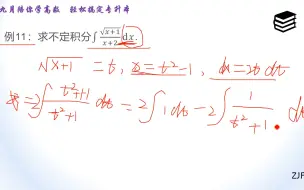 九月陪你学高数 轻松搞定专升本
例11：求不定积分∫ √(x+1)/(x+2) dx.
√(x+1) = t, x = t²-1, dx = 2t dt
= 2∫ (t²+1)/(t²+1) dt = 2∫ 1 dt - 2∫ 1/(t²+1) · dt
ZJF